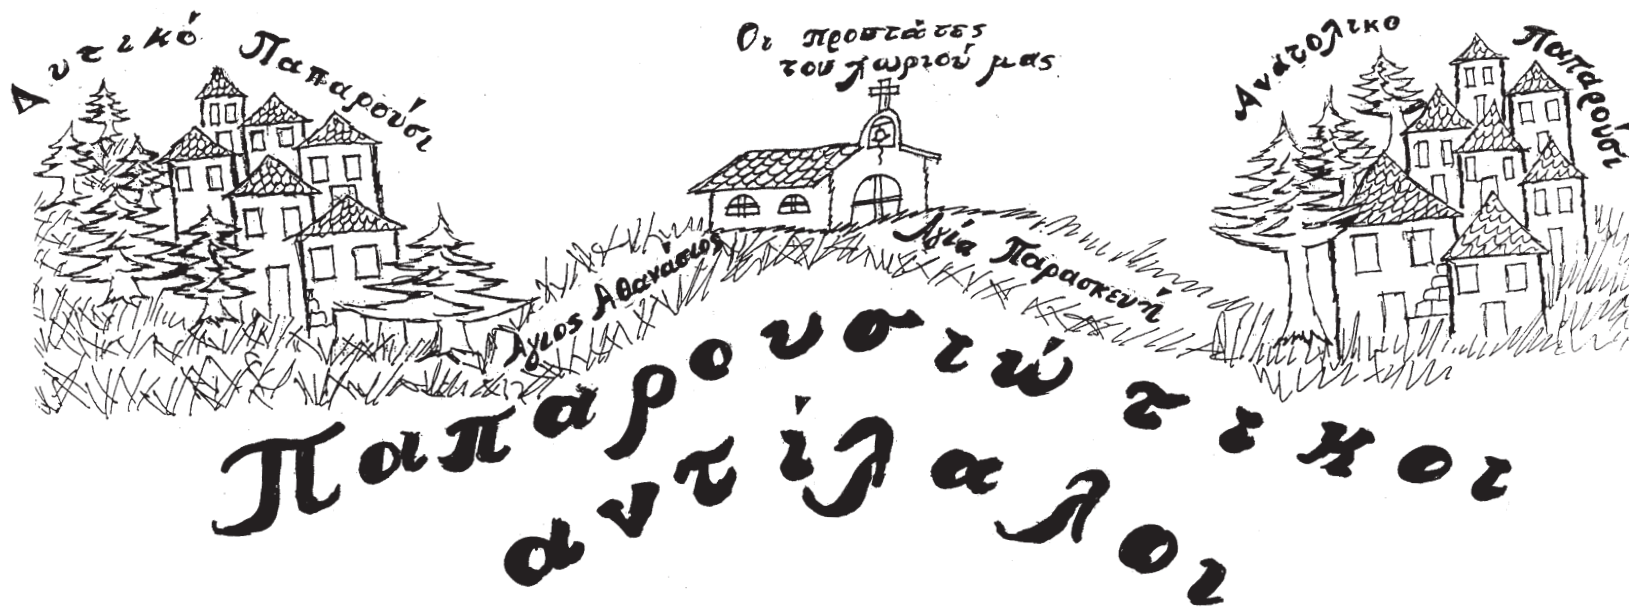 Δυτικό Παπαρούσι
Οι προστάτες
του χωριού μας
Ανατολικο Παπαρούσι
Άγιος Αθανάσιος
Αγία Παρασκευή
Παπαρουστώτικοι
αντίλαλοι